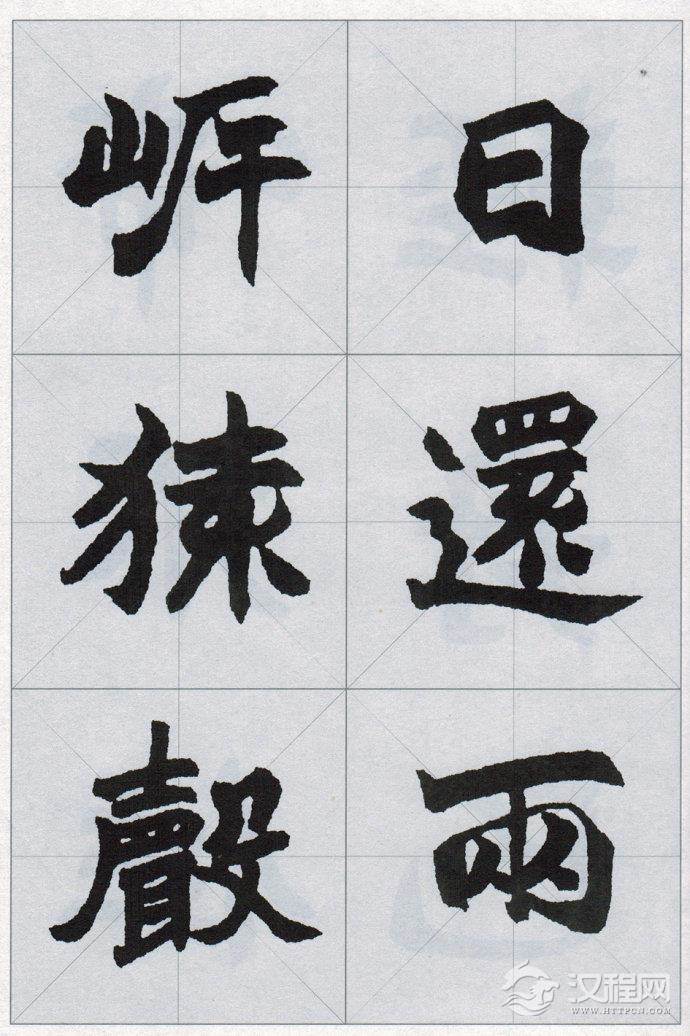 日還兩
岍猿聲
汉程网
WWW.HTTPCN.COM